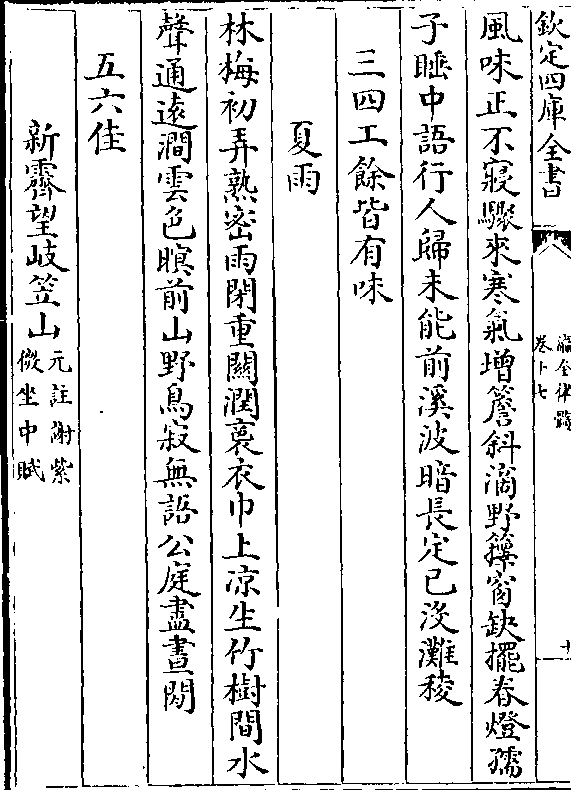 欽定四庫全書
瀛奎律髓
卷十七
十
風味正不寢驟來寒氣增簷斜滴野籜窗缺擺春燈孺
子睡中語行人歸未能前溪波暗長定已沒灘稜
三四工餘皆有味
夏雨
林梅初弄熟密雨閉重關潤裛衣巾上凉生竹樹間水
聲通遠澗雲色暝前山野鳥寂無語公庭盡晝閑
五六佳
新霽望岐笠山元註謝紫
微坐中賦